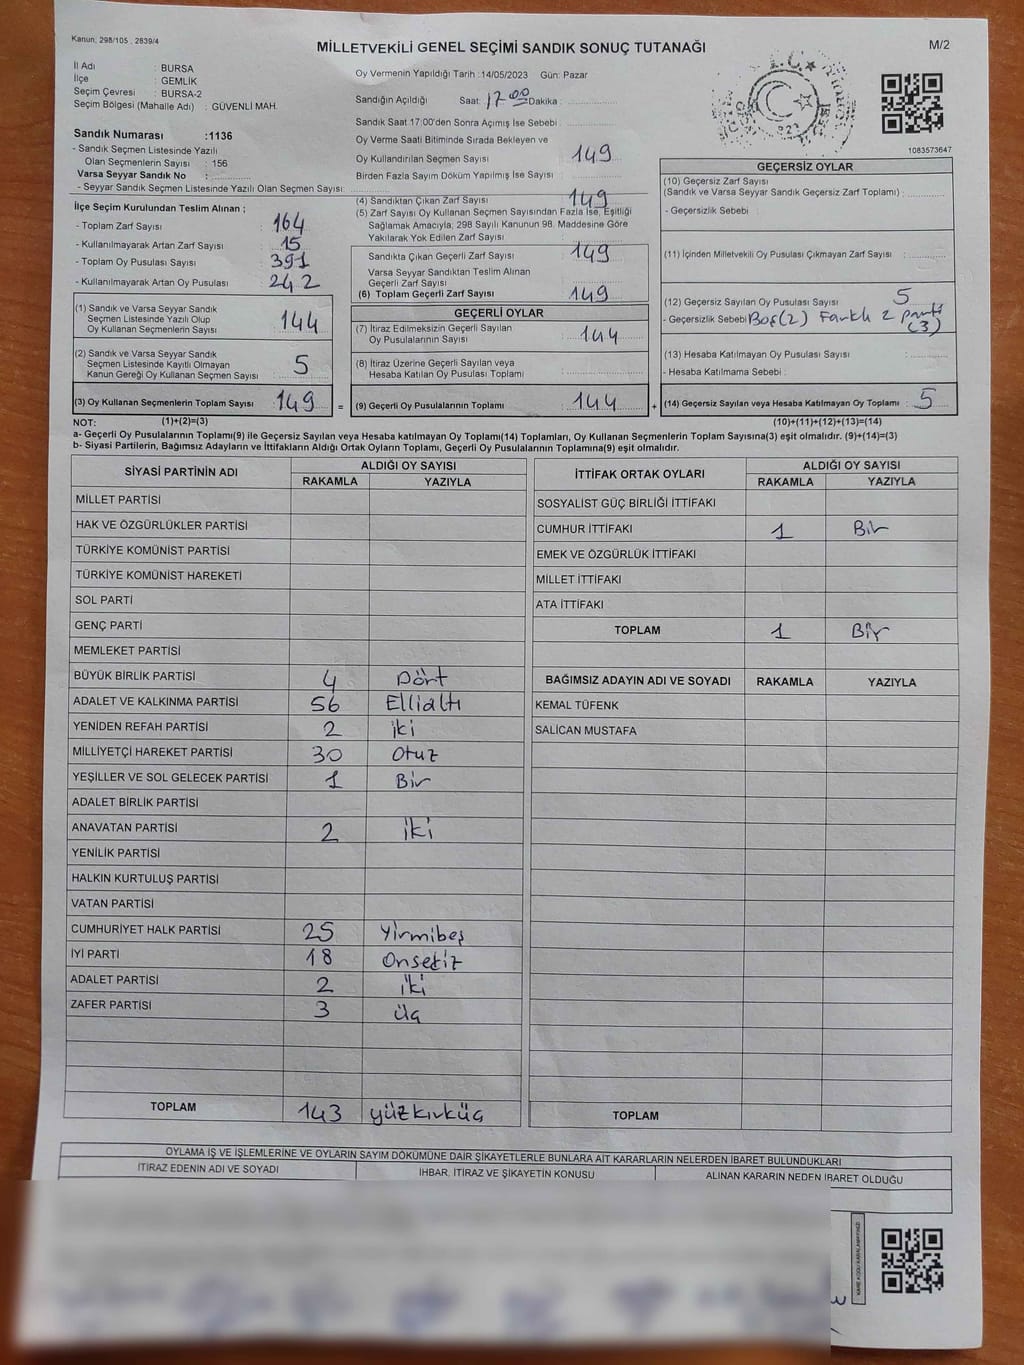 Kanun; 298/105 , 2839/4
MİLLETVEKİLİ GENEL SEÇİMİ SANDIK SONUÇ TUTANAĞI
M/2
İl Adı : BURSA
İlçe : GEMLİK
Seçim Çevresi : BURSA-2
Seçim Bölgesi (Mahalle Adı) : GÜVENLİ MAH.
Sandık Numarası :1136
- Sandık Seçmen Listesinde Yazılı
Olan Seçmenlerin Sayısı : 156
Varsa Seyyar Sandık No :
- Seyyar Sandık Seçmen Listesinde Yazılı Olan Seçmen Sayısı:
Oy Vermenin Yapıldığı Tarih :14/05/2023 Gün: Pazar
Sandığın Açıldığı Saat: 17 00 Dakika :
Sandık Saat 17:00'den Sonra Açımış İse Sebebi :
Oy Verme Saati Bitiminde Sırada Bekleyen ve
Oy Kullandırılan Seçmen Sayısı : 149
Birden Fazla Sayım Döküm Yapılmış İse Sayısı :
1083573647
İlçe Seçim Kurulundan Teslim Alınan ;
- Toplam Zarf Sayısı : 164
- Kullanılmayarak Artan Zarf Sayısı : 15
- Toplam Oy Pusulası Sayısı : 391
- Kullanılmayarak Artan Oy Pusulası : 242
(1) Sandık ve Varsa Seyyar Sandık
Seçmen Listesinde Yazılı Olup
Oy Kullanan Seçmenlerin Sayısı : 144
(2) Sandık ve Varsa Seyyar Sandık
Seçmen Listesinde Kayıtlı Olmayan
Kanun Gereği Oy Kullanan Seçmen Sayısı : 5
(3) Oy Kullanan Seçmenlerin Toplam Sayısı : 149 =
(4) Sandıktan Çıkan Zarf Sayısı : 149
(5) Zarf Sayısı Oy Kullanan Seçmen Sayısından Fazla İse, Eşitliği
Sağlamak Amacıyla; 298 Sayılı Kanunun 98. Maddesine Göre
Yakılarak Yok Edilen Zarf Sayısı :
Sandıkta Çıkan Geçerli Zarf Sayısı : 149
Varsa Seyyar Sandıktan Teslim Alınan
Geçerli Zarf Sayısı :
(6) Toplam Geçerli Zarf Sayısı : 149
GEÇERLİ OYLAR
(7) İtiraz Edilmeksizin Geçerli Sayılan
Oy Pusulalarının Sayısı : 144
(8) İtiraz Üzerine Geçerli Sayılan veya
Hesaba Katılan Oy Pusulası Toplamı :
(9) Geçerli Oy Pusulalarının Toplamı : 144 +
GEÇERSİZ OYLAR
(10) Geçersiz Zarf Sayısı
(Sandık ve Varsa Seyyar Sandık Geçersiz Zarf Toplamı) :
- Geçersizlik Sebebi :
(11) İçinden Milletvekili Oy Pusulası Çıkmayan Zarf Sayısı :
(12) Geçersiz Sayılan Oy Pusulası Sayısı : 5
- Geçersizlik Sebebi Boş(2) Farklı 2 parti
(3)
(13) Hesaba Katılmayan Oy Pusulası Sayısı :
- Hesaba Katılmama Sebebi :
(14) Geçersiz Sayılan veya Hesaba Katılmayan Oy Toplamı : 5
NOT: (1)+(2)=(3) (10)+(11)+(12)+(13)=(14)
a- Geçerli Oy Pusulalarının Toplamı(9) ile Geçersiz Sayılan veya Hesaba katılmayan Oy Toplamı(14) Toplamları, Oy Kullanan Seçmenlerin Toplam Sayısına(3) eşit olmalıdır. (9)+(14)=(3)
b- Siyasi Partilerin, Bağımsız Adayların ve İttifakların Aldığı Ortak Oyların Toplamı, Geçerli Oy Pusulalarının Toplamına(9) eşit olmalıdır.
SİYASİ PARTİNİN ADI ALDIĞI OY SAYISI
RAKAMLA YAZIYLA
MİLLET PARTİSİ
HAK VE ÖZGÜRLÜKLER PARTİSİ
TÜRKİYE KOMÜNİST PARTİSİ
TÜRKİYE KOMÜNİST HAREKETİ
SOL PARTİ
GENÇ PARTİ
MEMLEKET PARTİSİ
BÜYÜK BİRLİK PARTİSİ 4 Dört
ADALET VE KALKINMA PARTİSİ 56 Ellialtı
YENİDEN REFAH PARTİSİ 2 iki
MİLLİYETÇİ HAREKET PARTİSİ 30 Otuz
YEŞİLLER VE SOL GELECEK PARTİSİ 1 Bir
ADALET BİRLİK PARTİSİ
ANAVATAN PARTİSİ 2 iki
YENİLİK PARTİSİ
HALKIN KURTULUŞ PARTİSİ
VATAN PARTİSİ
CUMHURİYET HALK PARTİSİ 25 Yirmibeş
İYİ PARTİ 18 Onsekiz
ADALET PARTİSİ 2 iki
ZAFER PARTİSİ 3 üç
TOPLAM 143 yüzkırküç
İTTİFAK ORTAK OYLARI ALDIĞI OY SAYISI
RAKAMLA YAZIYLA
SOSYALİST GÜÇ BİRLİĞİ İTTİFAKI
CUMHUR İTTİFAKI 1 Bir
EMEK VE ÖZGÜRLÜK İTTİFAKI
MİLLET İTTİFAKI
ATA İTTİFAKI
TOPLAM 1 Bir
BAĞIMSIZ ADAYIN ADI VE SOYADI RAKAMLA YAZIYLA
KEMAL TÜFENK
SALİCAN MUSTAFA
TOPLAM
OYLAMA İŞ VE İŞLEMLERİNE VE OYLARIN SAYIM DÖKÜMÜNE DAİR ŞİKAYETLERLE BUNLARA AİT KARARLARIN NELERDEN İBARET BULUNDUKLARI
İTİRAZ EDENİN ADI VE SOYADI İHBAR, İTİRAZ VE ŞİKAYETİN KONUSU ALINAN KARARIN NEDEN İBARET OLDUĞU